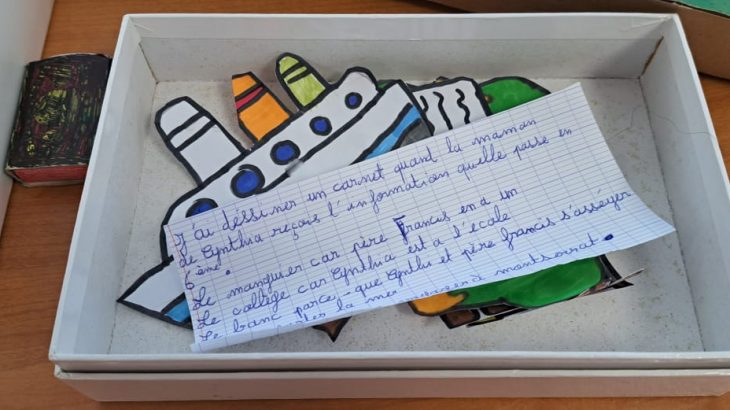 J'ai déssiner un carnet quand la maman
de Cynthia reçois l'information quelle passe en
6 ème.
Le manguier car père Francis en a un
Le collège car Cynthia est a l'ecole
Le banc parce que Cynthi et père francis s'asséyer
la mer à montserrat.